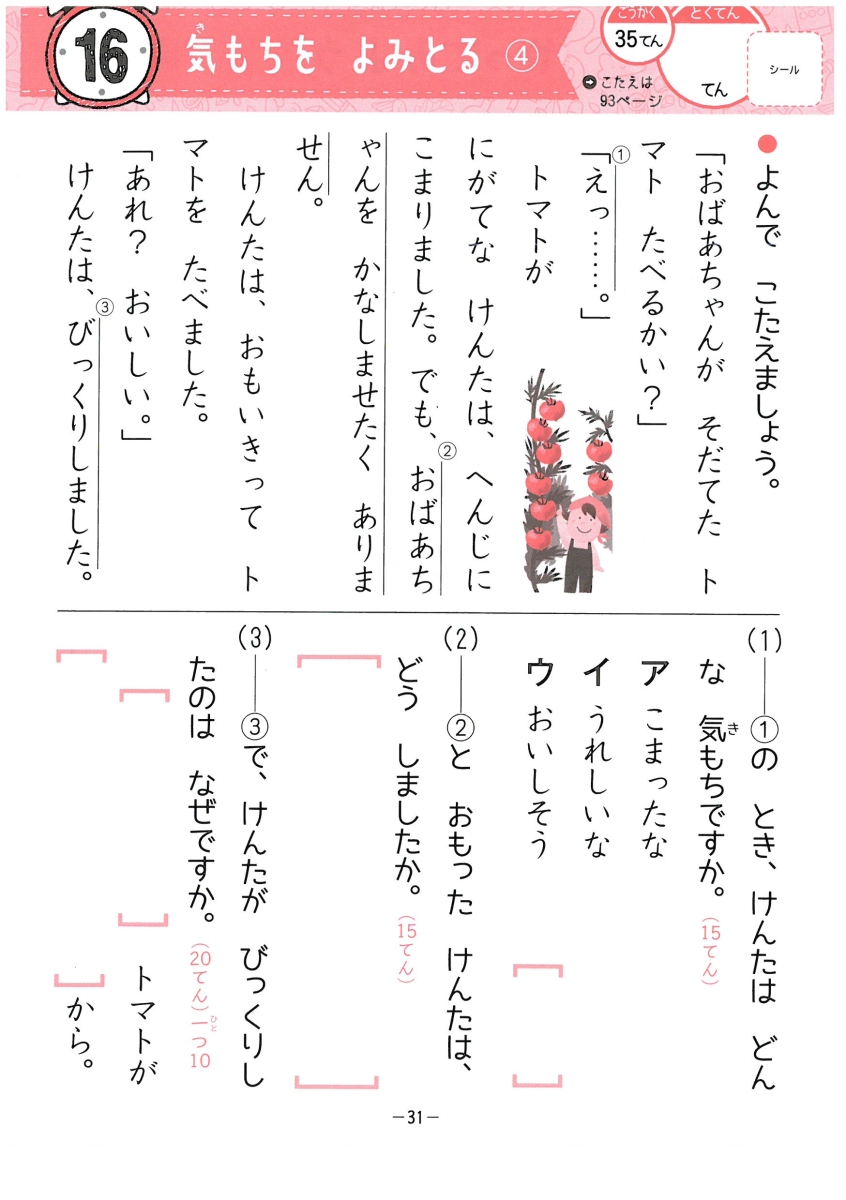 16
気もちを よみとる ④
き
ごうかく
35てん
とくてん
てん
シール
こたえは
93ページ
● よんで こたえましょう。
「おばあちゃんが そだてた ト
マト たべるかい？」
①「えっ……。」
トマトが
にがてな けんたは、へんじに
こまりました。でも、②おばあち
ゃんを かなしませたく ありま
せん。
けんたは、おもいきって ト
マトを たべました。
「あれ？ おいしい。」
けんたは、③びっくりしました。
(1)──①の とき、けんたは どん
な 気もちですか。（15てん）
き
ア こまったな
イ うれしいな
ウ おいしそう
(2)──②と おもった けんたは、
どう しましたか。（15てん）
(3)──③で、けんたが びっくりし
たのは なぜですか。（20てん）一つ10
ひと
トマトが
から。
－31－